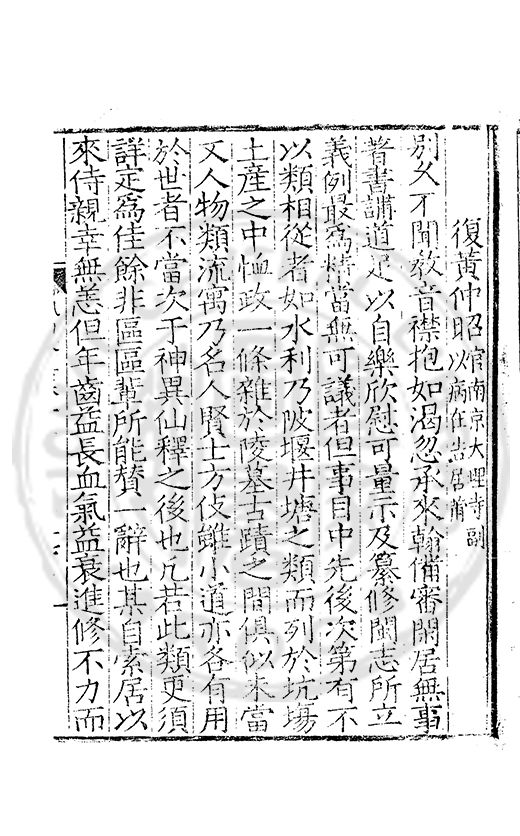 復黃仲昭官南京大理寺副以病在告居莆
別久不聞敎音襟抱如渴忽承來翰備審閑居無事
著書講道足以自樂欣慰可量示及纂修閩志所立
義例最爲精當無可議者但事目中先後次第有不
以類相從者如水利乃陂堰井塘之類而列於坑場
土產之中恤政一條雜於陵墓古蹟之間俱似未當
又人物類流寓乃名人賢士方伎雖小道亦各有用
於世者不當次于神異仙釋之後也凡若此類更須
詳定爲佳餘非區區輩所能賛一辭也某自索居以
來侍親幸無恙但年齒益長血氣益衰進修不力而